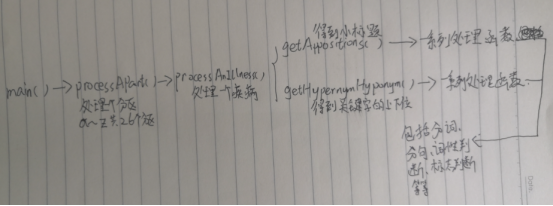 得到小标题
getAppositions() → 一系列处理函数
main() → processAPart() → processAnIllness()
处理一个分区
a~z共26个区
处理一个疾病
getHypernymHyponym() → 一系列处理函数
得到关键字的上下位
包括分词、
分句、词性判
断、标志判断
等等